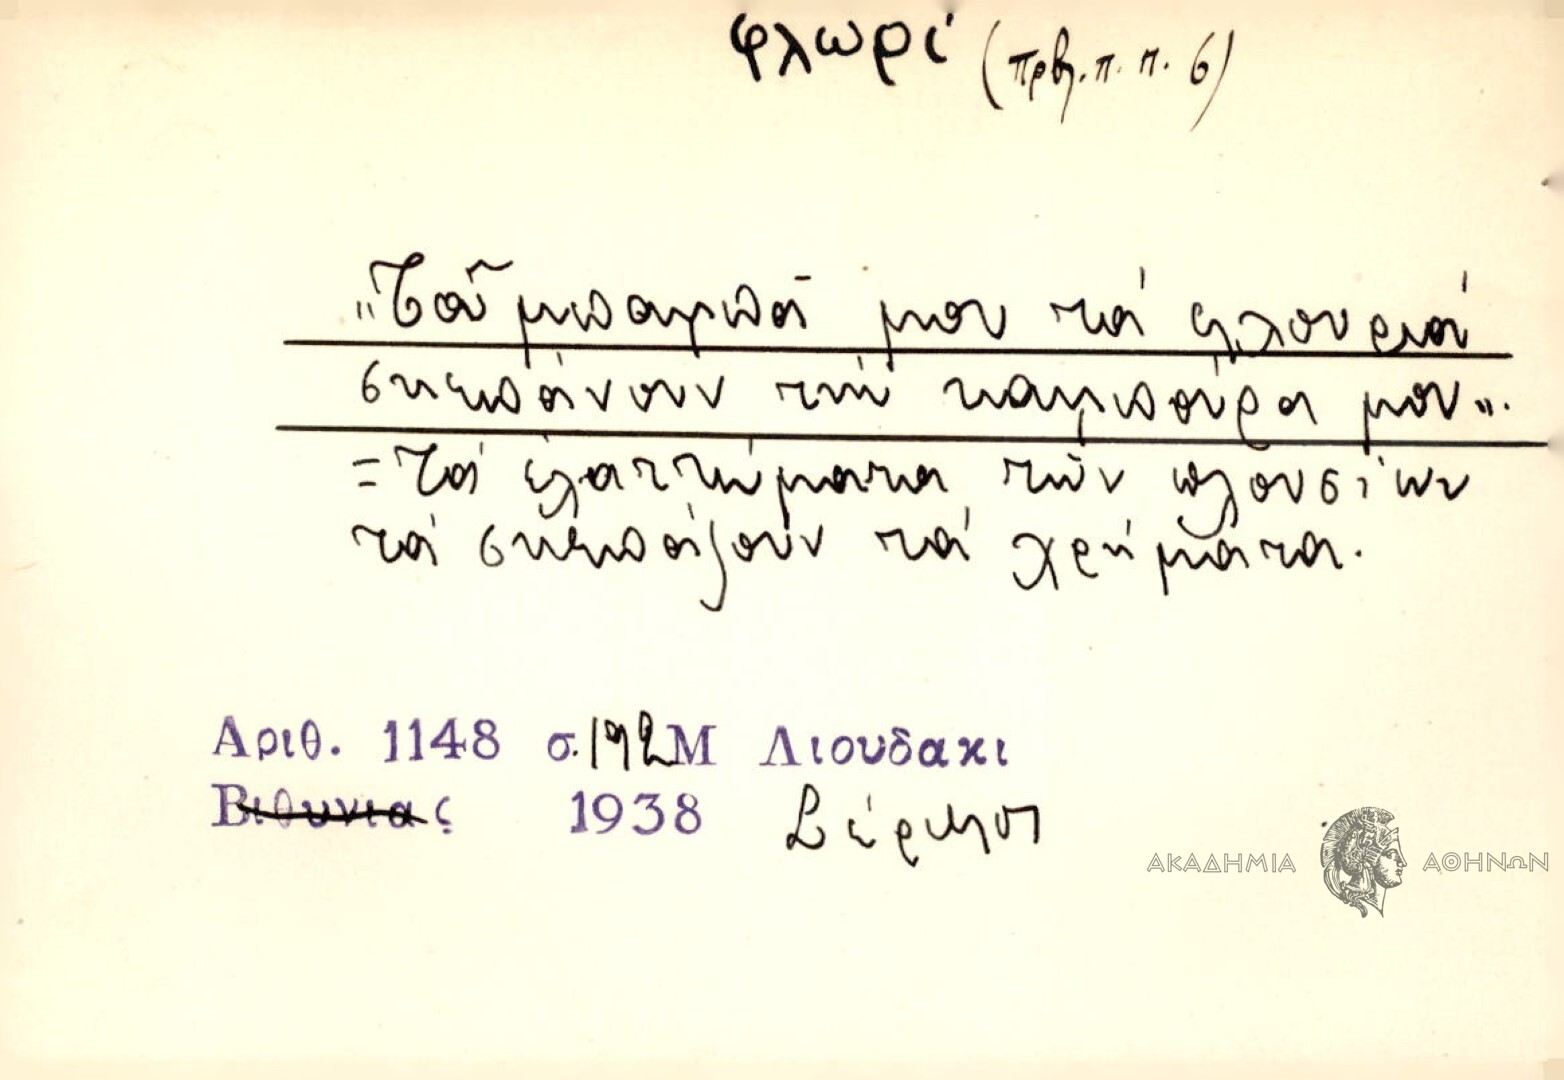 φλωρί (πρβλ. π. π. 6)
„Τοῦ μπαμπᾶ μου τά φλουριά
σκεπάνουν τήν καμπούρα μου".
=Τά ἐλαττώματα τῶν πλουσίων
τά σκεπάζουν τά χρήματα.
Αριθ. 1148 σ. 192 Μ Λιουδακι
Βιθυνιας 1938
ΑΚΑΔΗΜΙΑ ΑΘΗΝΩΝ